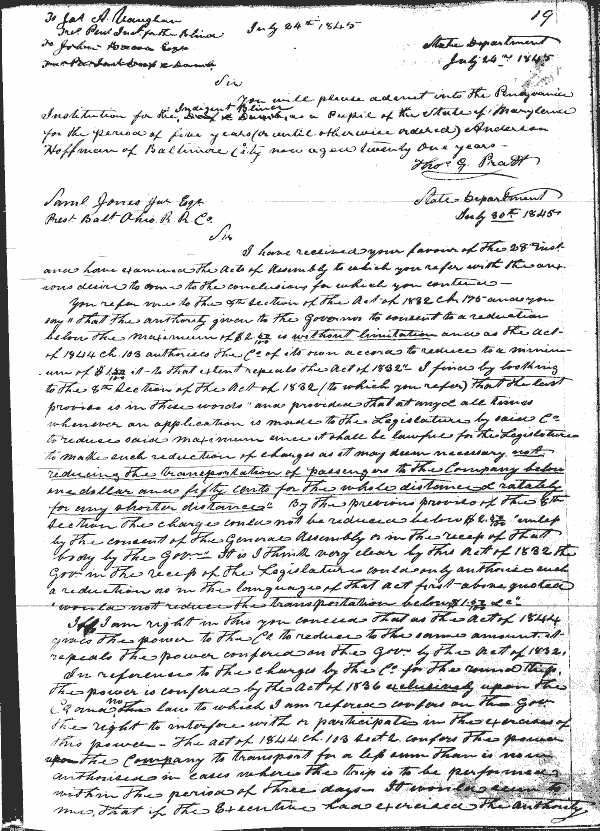 19
To Jas A. Vaughan
Prest Penl Inst for the Blind
To John Bacon Esqr
July 24th 1845
State Department
July 24th 1845
Sir
You will please admit into the Pensylvania
Institution for the, Indigent Blind Deaf & Dumb, as a Pupil of the State of Maryland
for the period of five years (or until otherwise ordered) Anderson
Hoffman of Baltimore City now aged twenty one years -
Thos G. Pratt
Saml Jones Jur Esqr
Prest Balt Ohio R. R Co
State Department
July 30th 1845
Sir
I have received your favour of the 28th inst
and have examined the Acts of Assembly to which you refer with the anx-
ious desire to come to the conclusions for which you contend -
You refer me to the 8th section of the Act of 1832 Ch 175 and you
say "that the authority given to the Governor to consent to a reduction
below the maximum of $2 50/100 is without limitation and as the Act
of 1844 Ch 103 authorises the Co of its own accord to reduce to a minim-
um of $1 50/100 it to that extent repeals the Act of 1832" I find by looking
to the 8th Section of the Act of 1832 (to which you refer) that the last
proviso is in these words "and provided that at any & all times
whenever an application is made to the Legislature by said Co
to reduce said maximum once it shall be lawful for the Legislature
to make such reduction of charges as it may deem necessary not
reducing the transportation of passengers to the Company below
one dollar and fifty cents for the whole distance & ratably
for any shorter distance". By the previous proviso of the 8th
Section the charge could not be reduced below $2 50/100 "unless
by the consent of the General Assembly or in the recess of that
body by the Govr" It is I think very clear by this Act of 1832 the
Govr in the recess of the Legislature could only authorise such
a reduction as in the language of that Act first above quoted
"would not reduce the transportation below $1 50/100 &c".
If I am right in this you concede that as the Act of 1844
gives the power to the Co to reduce to the same amount it
repeals the power confered on the Govr by the Act of 1832.
In reference to the charges by the Co for the round trip.
the power is confered by the Act of 1836 exclusively upon the
Co and no the law to which I am refered confers on the Govr
the right to interfere with or participate in the exercise of
this power - The act of 1844 Ch 103 sect confers the power
upon the Company to transport for a less sum than is now
authorised in cases where the trip is to be performed
within the period of three days - It would seem to
me, that if the Executive had exercised the authority